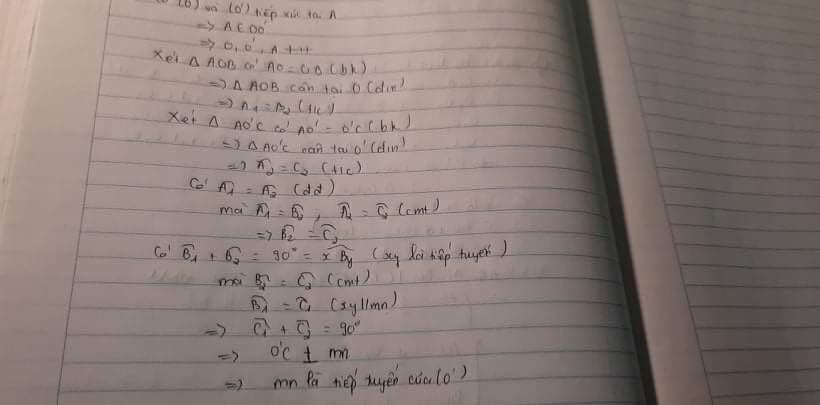 (O) và (O') tiếp xúc tại A
=> A ∈ OO'
=> O, O', A t.h
Xét Δ AOB có AO = OB (bk)
=> Δ AOB cân tại O (đ/n)
=> Â1 = B̂2 (t/c)
Xét Δ AO'C có AO' = O'C (bk)
=> Δ AO'C cân tại O' (đ/n)
=> Â2 = Ĉ2 (t/c)
Có Â1 = Â2 (đđ)
mà Â1 = B̂2, Â2 = Ĉ2 (cmt)
=> B̂2 = Ĉ2
Có B̂1 + B̂2 = 90° = xBy (xy là tiếp tuyến)
mà B̂2 = Ĉ2 (cmt)
B̂1 = Ĉ1 (xy // mn)
=> Ĉ1 + Ĉ2 = 90°
=> O'C ⊥ mn
=> mn là tiếp tuyến của (O')